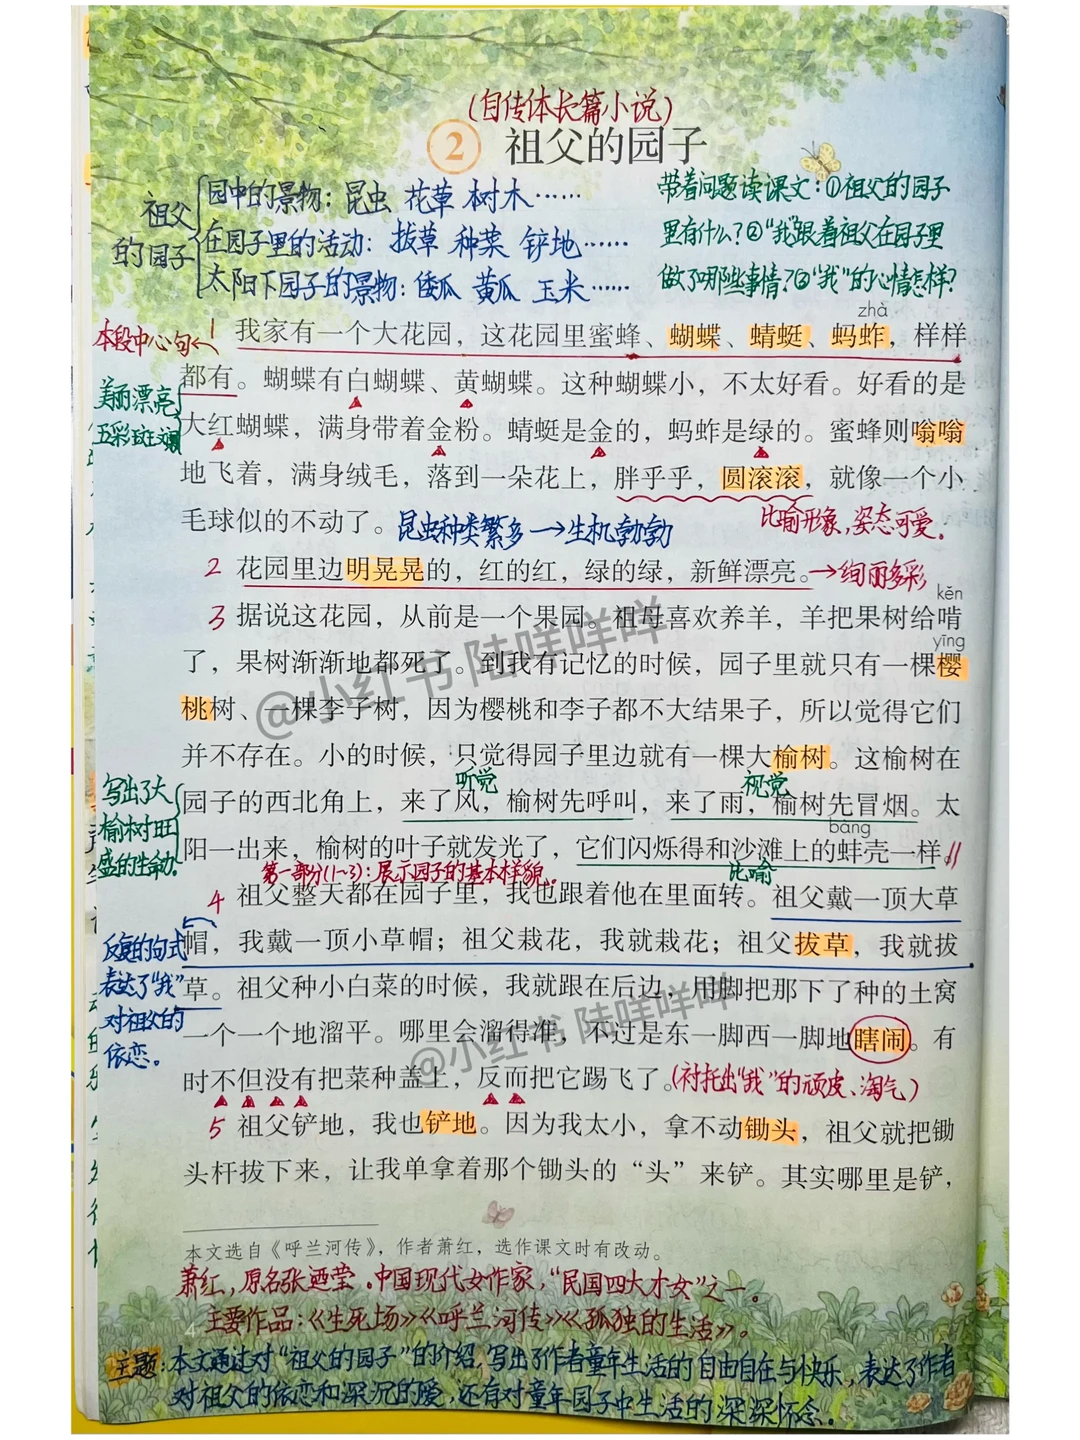 (自传体长篇小说)
2 祖父的园子
祖父的园子
园中的景物：昆虫 花草 树木……
在园子里的活动：拔草 种菜 铲地……
太阳下园子的景物：倭瓜 黄瓜 玉米……
带着问题读课文：①祖父的园子
里有什么？②“我”跟着祖父在园子里
做了哪些事情？③“我”的心情怎样？
zhà
本段中心句
1 我家有一个大花园，这花园里蜜蜂、蝴蝶、蜻蜓、蚂蚱，样样
都有。蝴蝶有白蝴蝶、黄蝴蝶。这种蝴蝶小，不太好看。好看的是
美丽漂亮
五彩斑斓
大红蝴蝶，满身带着金粉。蜻蜓是金的，蚂蚱是绿的。蜜蜂则嗡嗡
地飞着，满身绒毛，落到一朵花上，胖乎乎，圆滚滚，就像一个小
毛球似的不动了。
昆虫种类繁多→生机勃勃
比喻形象，姿态可爱。
2 花园里边明晃晃的，红的红，绿的绿，新鲜漂亮。→绚丽多彩
kěn
3 据说这花园，从前是一个果园。祖母喜欢养羊，羊把果树给啃
yīng
了，果树渐渐地都死了。到我有记忆的时候，园子里就只有一棵樱
桃树、一棵李子树，因为樱桃和李子都不大结果子，所以觉得它们
并不存在。小的时候，只觉得园子里边就有一棵大榆树。这榆树在
听觉 视觉
写出了大
榆树旺
盛的生命力。
园子的西北角上，来了风，榆树先呼叫，来了雨，榆树先冒烟。太
bàng
阳一出来，榆树的叶子就发光了，它们闪烁得和沙滩上的蚌壳一样。
第一部分(1~3)：展示园子的基本样貌。
比喻
4 祖父整天都在园子里，我也跟着他在里面转。祖父戴一顶大草
帽，我戴一顶小草帽；祖父栽花，我就栽花；祖父拔草，我就拔
反复的句式
表达了“我”
对祖父的
依恋。
草。祖父种小白菜的时候，我就跟在后边，用脚把那下了种的土窝
一个一个地溜平。哪里会溜得准，不过是东一脚西一脚地瞎闹。有
时不但没有把菜种盖上，反而把它踢飞了。(衬托出“我”的顽皮、淘气)
5 祖父铲地，我也铲地。因为我太小，拿不动锄头，祖父就把锄
头杆拔下来，让我单拿着那个锄头的“头”来铲。其实哪里是铲，
本文选自《呼兰河传》，作者萧红，选作课文时有改动。
萧红，原名张迺莹。中国现代女作家，“民国四大才女”之一。
主要作品：《生死场》《呼兰河传》《孤独的生活》。
4
主题：本文通过对“祖父的园子”的介绍，写出了作者童年生活的自由自在与快乐，表达了作者
对祖父的依恋和深沉的爱，还有对童年园子中生活的深深怀念。
@小红书 陆咩咩咩
@小红书 陆咩咩咩